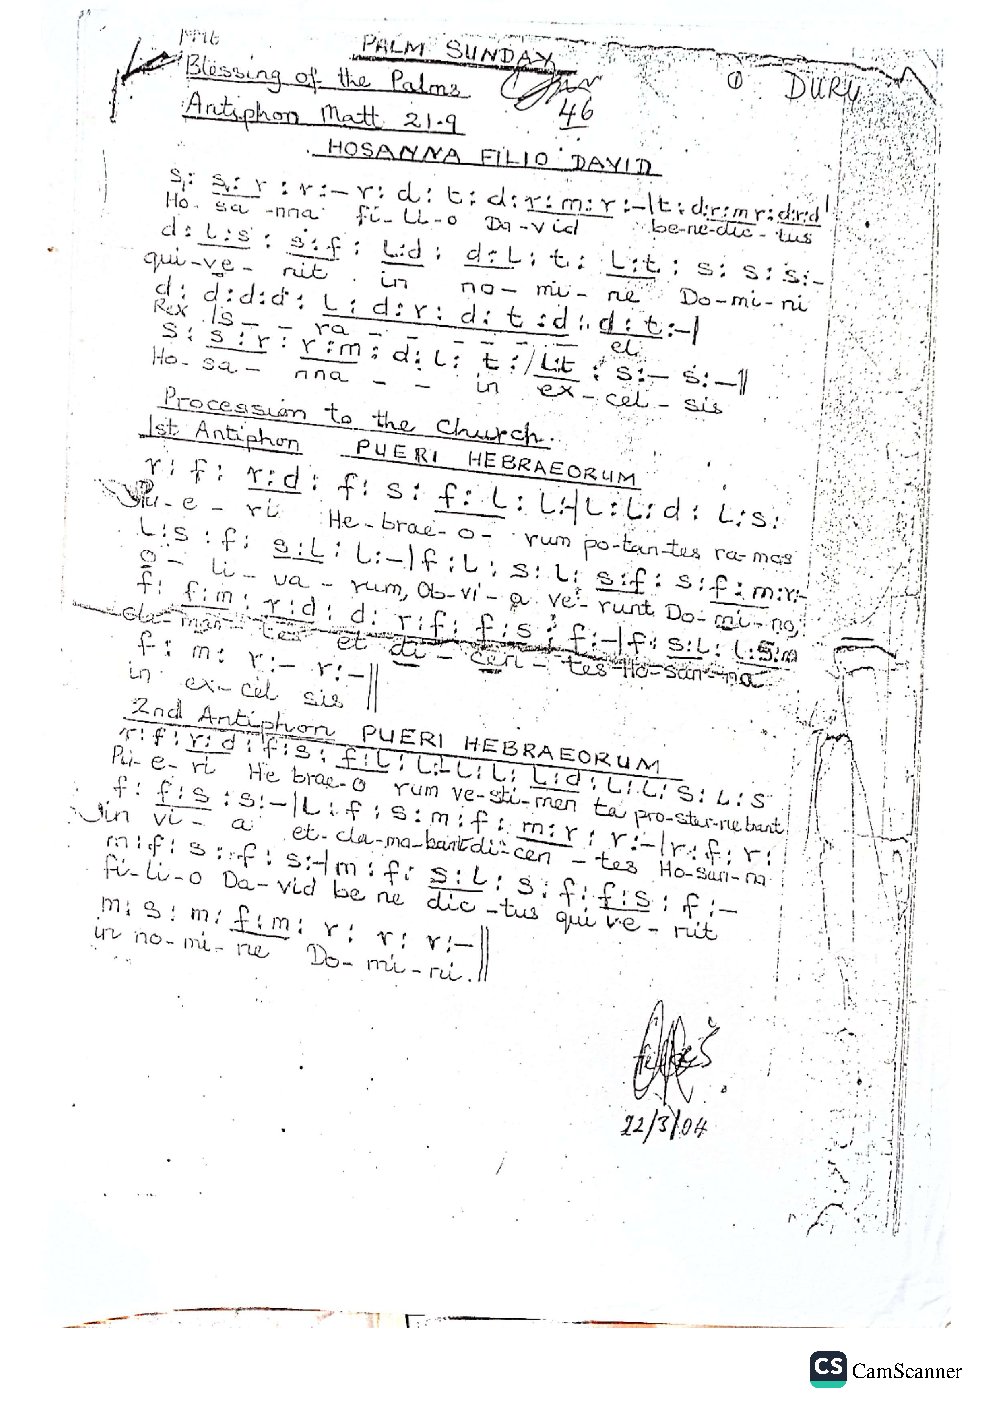 1996
PALM SUNDAY
Blessing of the Palms
46
① DURU
Antiphon Matt 21.9
HOSANNA FILIO DAVID
s: s:r : r:– r: d: t: d: r:m:r:–|t: d:r:m r:d:rd|
Ho- sa -nna fi-li-o Da-vid be-ne-dic-tus
d: L:s: s:f: L:d: d:L: t: L:t: s: s: s:-
qui-ve- nit in no-mi-ne Do-mi-ni
d: d:d:d: L: d: r: d: t: d: d: t:-|
Rex Is - - ra - - - - - - - el
s: s:r: r:m: d: L: t:/L:t: s:- s:-||
Ho-sa- nna - - in ex-cel-sis
Procession to the Church.
1st Antiphon PUERI HEBRAEORUM
r: f: r:d: f: s: f:L: L:-|L: L: d: L:s:
Pu-e-ri He-brae-o- rum po-tan-tes ra-mos
L:s: f: s:L: L:-|f: L: s: L: s:f: s:f:m:r:-
o- li-va-rum, Ob-vi-a ve-runt Do-mi-no,
f: f:m: r:d: d: r:f: f:s: f:-|f: s:L: L:S:m
cla-man-tes et di-cen-tes Ho-san-na
f: m: r:- r:-||
in ex-cel sis
2nd Antiphon PUERI HEBRAEORUM
r: f: r:d: f: s: f:L: L:-L: L: L:d: L: L: s: L: S
Pu-e-ri He brae-o rum ve-sti-men ta pro-ster-ne bant
f: f:s: s:-|L: f: s: m: f: m:r: r:-|r: f: r:
in vi-a et-cla-ma-bant di-cen-tes Ho-san-na
m: f: s: f: s:-|m: f: s:L: s: f: f:s: f:-
fi-li-o Da-vid be ne dic-tus qui ve-nit
m: s: m: f:m: r: r: r:-||
in no-mi-ne Do-mi-ni.
22/3/04
CS CamScanner